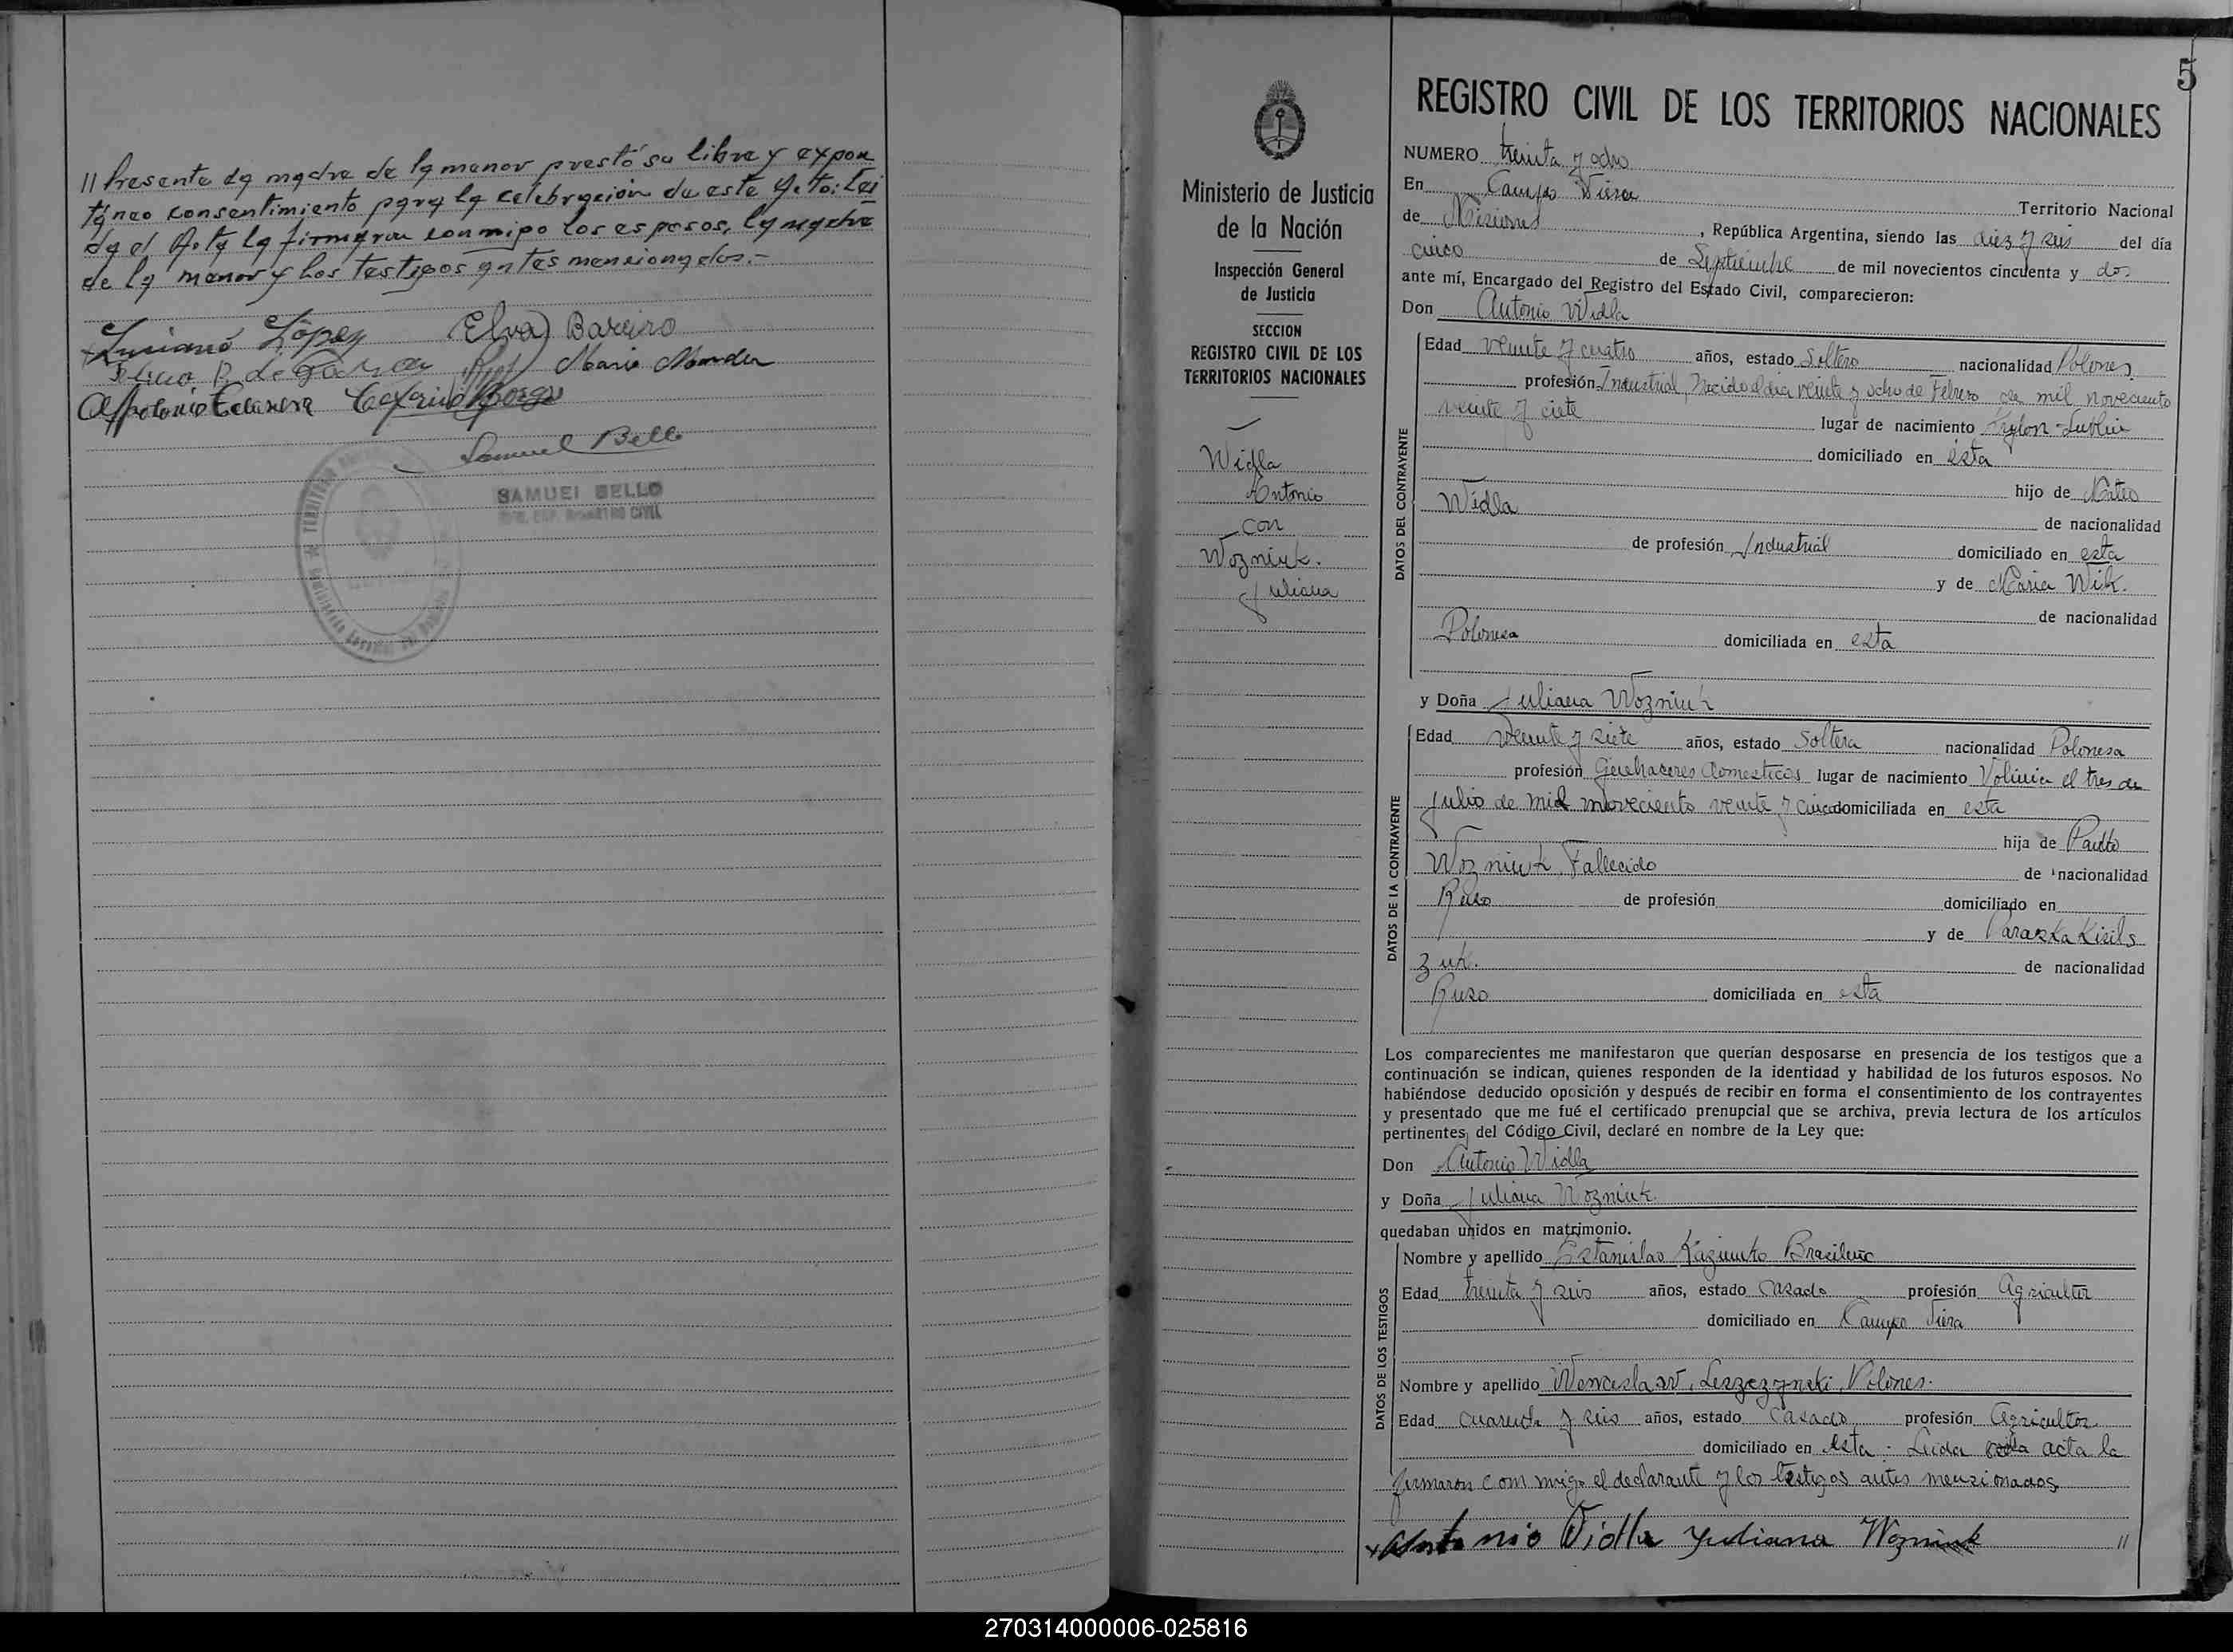 // Presente la madre de la menor prestó su libre y expon
táneo consentimiento para la celebración de este Acto: Leí
da el Acta la firmaron conmigo los esposos, la madre
de la menor y los testigos antes mencionados.-
Luciano López Elva Bareiro
Mario Mendez
Apolonio Ceferino Borges
Samuel Bello
SAMUEL BELLO
REGISTRO CIVIL
5
Ministerio de Justicia
de la Nación
Inspección General
de Justicia
SECCION
REGISTRO CIVIL DE LOS
TERRITORIOS NACIONALES
Widla
Antonio
con
Wozniuk.
Juliana
REGISTRO CIVIL DE LOS TERRITORIOS NACIONALES
NUMERO treinta y ocho
En Campo Viera Territorio Nacional
de Misiones, República Argentina, siendo las diez y seis del día
cinco de Septiembre de mil novecientos cincuenta y dos
ante mí, Encargado del Registro del Estado Civil, comparecieron:
Don Antonio Widla
DATOS DEL CONTRAYENTE
Edad veinte y cuatro años, estado Soltero nacionalidad Polones.
profesión Industrial, Nacido el dia veinte y ocho de Febrero de mil noveciento
veinte y ciete lugar de nacimiento Lublin
domiciliado en esta
hijo de Mateo
Widla de nacionalidad
de profesión Industrial domiciliado en esta
y de Maria Wik.
de nacionalidad
Polonesa domiciliada en esta
y Doña Juliana Wozniuk
DATOS DE LA CONTRAYENTE
Edad veinte y siete años, estado Soltera nacionalidad Polonesa
profesión Quehaceres domesticos lugar de nacimiento Volinia el tres de
Julio de mil noveciento veinte y cinco domiciliada en esta
hija de Pablo
Wozniuk Fallecido de nacionalidad
Ruso de profesión domiciliado en
y de Paraska Kirils
zuk. de nacionalidad
Ruso domiciliada en esta
Los comparecientes me manifestaron que querían desposarse en presencia de los testigos que a
continuación se indican, quienes responden de la identidad y habilidad de los futuros esposos. No
habiéndose deducido oposición y después de recibir en forma el consentimiento de los contrayentes
y presentado que me fué el certificado prenupcial que se archiva, previa lectura de los artículos
pertinentes del Código Civil, declaré en nombre de la Ley que:
Don Antonio Widla
y Doña Juliana Wozniuk.
quedaban unidos en matrimonio.
DATOS DE LOS TESTIGOS
Nombre y apellido Estanislao Kazimko Brasileño
Edad treinta y seis años, estado casado profesión Agricultor
domiciliado en Campo Viera
Nombre y apellido Wenceslaw, Leszczynski, Polones.
Edad cuarenta y seis años, estado Casado profesión Agricultor
domiciliado en esta. Leida acta la
firmaron conmigo el declarante y los testigos antes mencionados.
Antonio Vidla Yuliana Wozniuk //
270314000006-025816